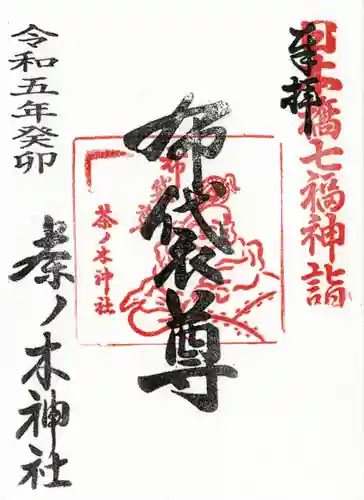 奉拝
日本橋七福神詣
布袋尊
布袋尊
茶ノ木神社
令和五年癸卯
茶ノ木神社